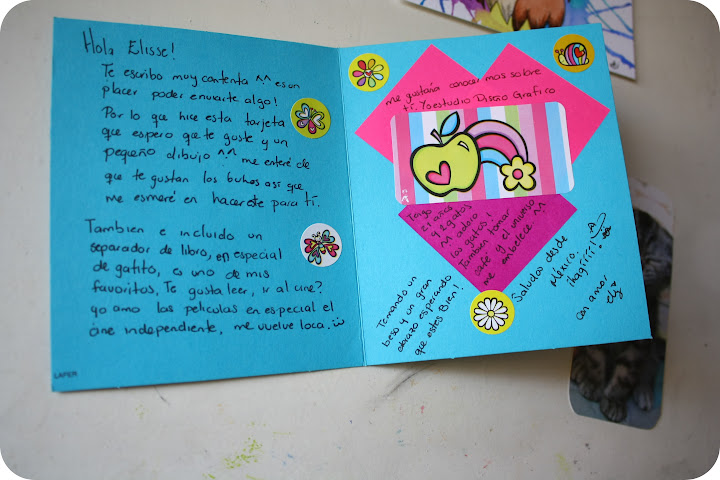 Hola Elisse!
Te escribo muy contenta ^^ es un
placer poder enviarte algo!
Por lo que hice esta tarjeta
que espero que te guste y un
pequeño dibujo ^^ me enteré de
que te gustan los buhos asi que
me esmeré en hacerote para tí.
Tambien e incluido un
separador de libro, en especial
de gatito, es uno de mis
favoritos, Te gusta leer, ir al cine?
yo amo las peliculas en especial el
cine independiente, me vuelve loca.
LAPER
me gustaria conocer mas sobre
tí. Yo estudio Diseño Grafico
Tengo
21 años
y 2 gatos
^^ adoro
los gatos!
Tambien tomar
café y el universo
me embelece ^^
Temando un
beso y un gran
abrazo esperando
que estes Bien!
Saludos desde
México,
con amor